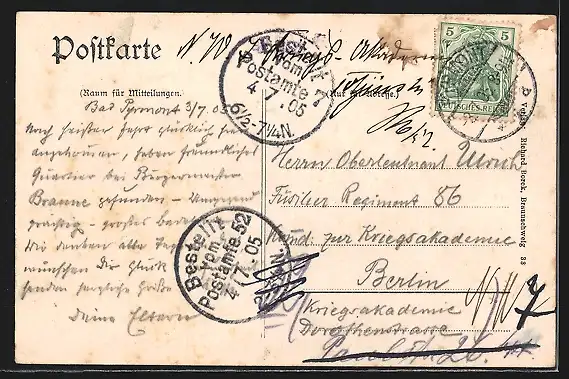 Postkarte
N. W.
Kriegs-Akademie
(Raum für Mitteilungen.)
Bad Pyrmont 3/7. 05
Nach heißer Fahrt glücklich hier
angekommen, haben freundliches
Quartier bei Bürgermeister
Braune gefunden - Umgegend
prächtig - großes
Wir denken alle
wünschen Dir Glück
senden herzliche Grüße
Deine Eltern
Bestellt
vom
Postamte 7
4.7.05
6½-7¼N.
Bestellt
vom
Postamte 52
4.7.05
5
5
DEUTSCHES REICH
Herrn Oberleutnant Ulrich
Füsilier Regiment 86
Kmd. zur Kriegsakademie
Berlin
N.W. 7
Kriegsakademie
Dorotheenstrasse
Verlag Richard Borek, Braunschweig 33